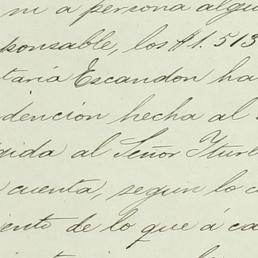 ni a persona algu
ponsable, los $1.513
taria Escandon ha
dencion hecha al
gida al Señor Yturb
cuenta, segun lo c
iento de lo que á ca